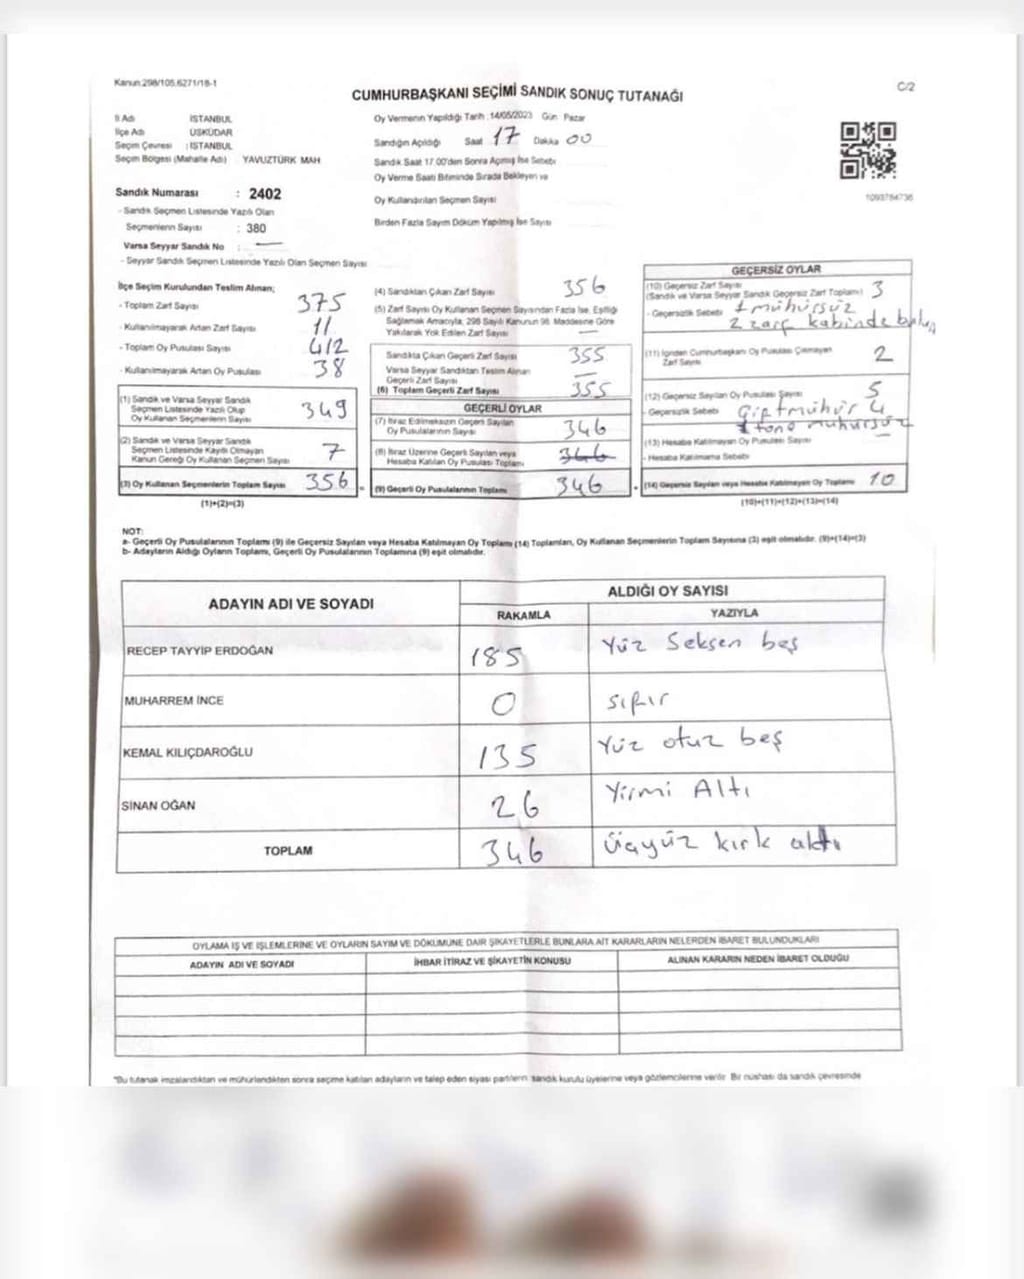 Kanun:298/105,6271/18-1
C/2
CUMHURBAŞKANI SEÇİMİ SANDIK SONUÇ TUTANAĞI
İl Adı İSTANBUL
İlçe Adı ÜSKÜDAR
Seçim Çevresi : İSTANBUL
Seçim Bölgesi (Mahalle Adı) YAVUZTÜRK MAH
Sandık Numarası : 2402
- Sandık Seçmen Listesinde Yazılı Olan
Seçmenlerin Sayısı : 380
Varsa Seyyar Sandık No : —
- Seyyar Sandık Seçmen Listesinde Yazılı Olan Seçmen Sayısı
Oy Vermenin Yapıldığı Tarih :14/05/2023 Gün Pazar
Sandığın Açıldığı Saat 17 Dakika 00
Sandık Saat 17.00'den Sonra Açmış İse Sebebi
Oy Verme Saati Bitiminde Sırada Bekleyen ve
Oy Kullandırılan Seçmen Sayısı
Birden Fazla Sayım Döküm Yapılmış İse Sayısı
1093784736
İlçe Seçim Kurulundan Teslim Alınan;
- Toplam Zarf Sayısı 375
- Kullanılmayarak Artan Zarf Sayısı 11
- Toplam Oy Pusulası Sayısı 412
- Kullanılmayarak Artan Oy Pusulası 38
(1) Sandık ve Varsa Seyyar Sandık
Seçmen Listesinde Yazılı Olup
Oy Kullanan Seçmenlerin Sayısı 349
(2) Sandık ve Varsa Seyyar Sandık
Seçmen Listesinde Kayıtlı Olmayan
Kanun Gereği Oy Kullanan Seçmen Sayısı 7
(3) Oy Kullanan Seçmenlerin Toplam Sayısı 356
(1)+(2)=(3)
(4) Sandıktan Çıkan Zarf Sayısı 356
(5) Zarf Sayısı Oy Kullanan Seçmen Sayısından Fazla İse, Eşitliği
Sağlamak Amacıyla, 298 Sayılı Kanunun 98. Maddesine Göre
Yakılarak Yok Edilen Zarf Sayısı —
Sandıkta Çıkan Geçerli Zarf Sayısı 355
Varsa Seyyar Sandıktan Teslim Alınan
Geçerli Zarf Sayısı —
(6) Toplam Geçerli Zarf Sayısı 355
GEÇERLİ OYLAR
(7) İtiraz Edilmeksizin Geçerli Sayılan
Oy Pusulalarının Sayısı 346
(8) İtiraz Üzerine Geçerli Sayılan veya
Hesaba Katılan Oy Pusulası Toplamı 346
(9) Geçerli Oy Pusulalarının Toplamı 346
GEÇERSİZ OYLAR
(10) Geçersiz Zarf Sayısı
(Sandık ve Varsa Seyyar Sandık Geçersiz Zarf Toplamı) 3
- Geçersizlik Sebebi 1 mühürsüz
2 zarf kabinde
(11) İçinden Cumhurbaşkanı Oy Pusulası Çıkmayan
Zarf Sayısı 2
(12) Geçersiz Sayılan Oy Pusulası Sayısı 5
- Geçersizlik Sebebi mühür 4
1 tane mühürsüz
(13) Hesaba Katılmayan Oy Pusulası Sayısı —
- Hesaba Katılmama Sebebi
(14) Geçersiz Sayılan veya Hesaba Katılmayan Oy Toplamı 10
(10)+(11)+(12)+(13)=(14)
NOT:
a- Geçerli Oy Pusulalarının Toplamı (9) ile Geçersiz Sayılan veya Hesaba Katılmayan Oy Toplamı (14) Toplamları, Oy Kullanan Seçmenlerin Toplam Sayısına (3) eşit olmalıdır. (9)+(14)=(3)
b- Adayların Aldığı Oyların Toplamı, Geçerli Oy Pusulalarının Toplamına (9) eşit olmalıdır.
ADAYIN ADI VE SOYADI ALDIĞI OY SAYISI
RAKAMLA YAZIYLA
RECEP TAYYİP ERDOĞAN 185 Yüz Seksen beş
MUHARREM İNCE 0 sıfır
KEMAL KILIÇDAROĞLU 135 Yüz otuz beş
SİNAN OĞAN 26 Yirmi Altı
TOPLAM 346 Üçyüz kırk altı
OYLAMA İŞ VE İŞLEMLERİNE VE OYLARIN SAYIM VE DÖKÜMÜNE DAİR ŞİKAYETLERLE BUNLARA AİT KARARLARIN NELERDEN İBARET BULUNDUKLARI
ADAYIN ADI VE SOYADI İHBAR İTİRAZ VE ŞİKAYETİN KONUSU ALINAN KARARIN NEDEN İBARET OLDUĞU
"Bu tutanak imzalandıktan ve mühürlendikten sonra seçime katılan adayların ve talep eden siyasi partilerin sandık kurulu üyelerine veya gözlemcilerine verilir. Bir nüshası da sandık çevresinde